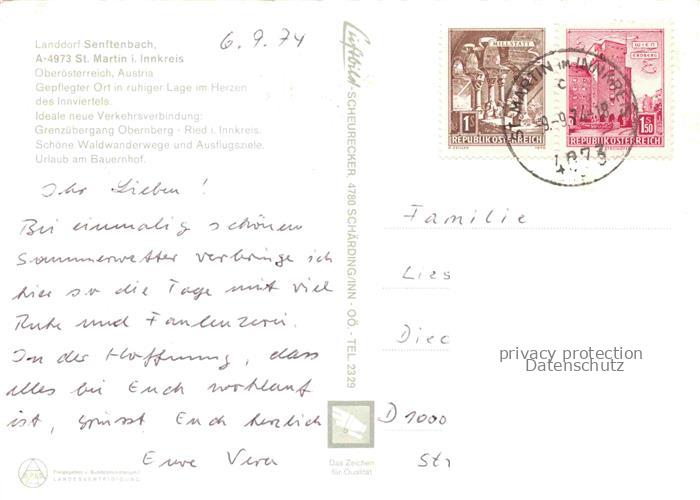 Landdorf Senftenbach,
A-4973 St. Martin i. Innkreis
Oberösterreich, Austria
Gepflegter Ort in ruhiger Lage im Herzen
des Innviertels.
Ideale neue Verkehrsverbindung:
Grenzübergang Obernberg - Ried i. Innkreis.
Schöne Waldwanderwege und Ausflugsziele.
Urlaub am Bauernhof.
6.9.74
Ihr Lieben!
Bei einmalig schönem
Sommerwetter verbringe ich
hier so die Tage mit viel
Ruhe und Faulenzerei.
In der Hoffnung, dass
alles bei Euch wohlauf
ist, grüsst Euch herzlich
Eure Vera
Freigegeben v. Bundesministerium f.
LANDESVERTEIDIGUNG
Luftbild-SCHEURECKER, 4780 SCHÄRDING/INN - OÖ. - TEL. 2329
Das Zeichen
für Qualität
MILLSTATT
1S
REPUBLIK ÖSTERREICH
WIEN
ERDBERG
1.50
REPUBLIK ÖSTERREICH
ST. MARTIN IM INNKREIS
4973
Familie
Lies
Diec
privacy protection
Datenschutz
D 1000
Str